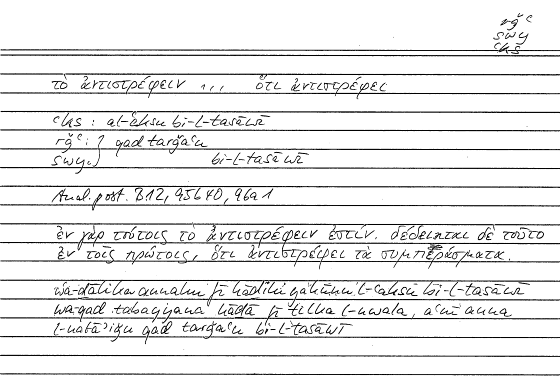 rǧʿ
swy
ʿks
τὸ ἀντιστρέφειν ... ὅτι ἀντιστρέφει
ʿks : al-ʿaksu bi-l-tasāwī
rǧʿ : } qad tarǧaʿu
swy } bi-l-tasāwī
Anal. post. B12, 95b40, 96a1
ἐν γὰρ τούτοις τὸ ἀντιστρέφειν ἐστίν. δέδεικται δὲ τοῦτο
ἐν τοῖς πρώτοις, ὅτι ἀντιστρέφει τὰ συμπεράσματα.
wa-ḏālika annahu fī hāḏihi yakūnu l-ʿaksu bi-l-tasāwī
wa-qad tabayyana hāḏā fī tilka l-uwala, aʿnī anna
l-natāʾiǧu qad tarǧaʿu bi-l-tasāwī